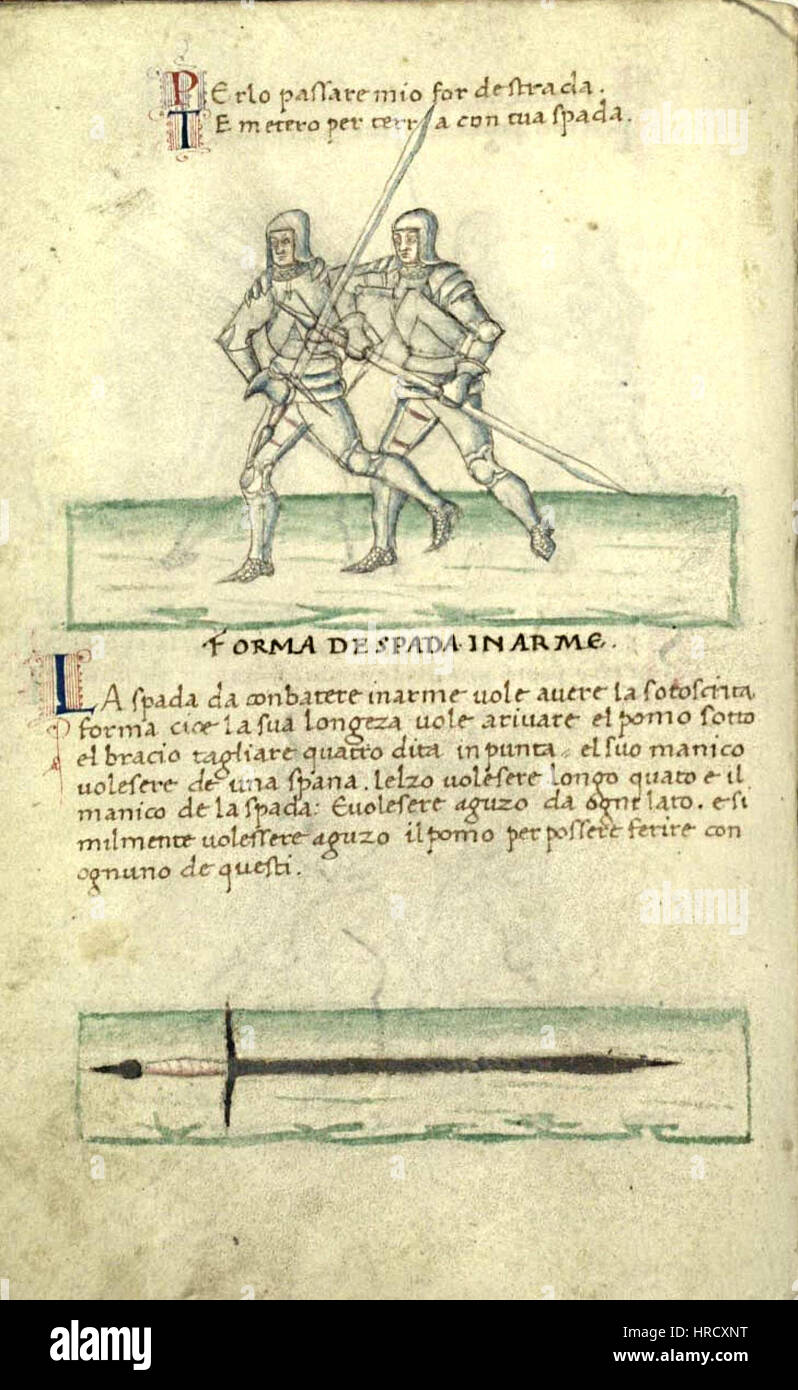 PErlo passare mio for de strada.
TE metero per terra con tua spada.
FORMA DE SPADA IN ARME.
LA spada da conbatere in arme vole avere la sotoscrita
forma cioe la sua longeza vole arivare el pomo sotto
el bracio tagliare quatro dita in punta el suo manico
volesere de una spana. Lelzo volesere longo quato e il
manico de la spada: Evolesere aguzo da ogne lato. e si
milmente volessere aguzo il pomo per possere ferire con
ognuno de questi.
alamy
alamy
alamy
alamy
alamy
Image ID: HRCXNT
www.alamy.com